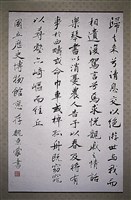 歸去來兮請息交以絕游世與我而
相違復駕言兮焉求悅親戚之情話
樂琴書以消憂農人告余以春及將有
事於西疇或命巾車或棹孤舟既窈窕
以尋壑亦崎嶇而經丘
國立歷史博物館 存 書